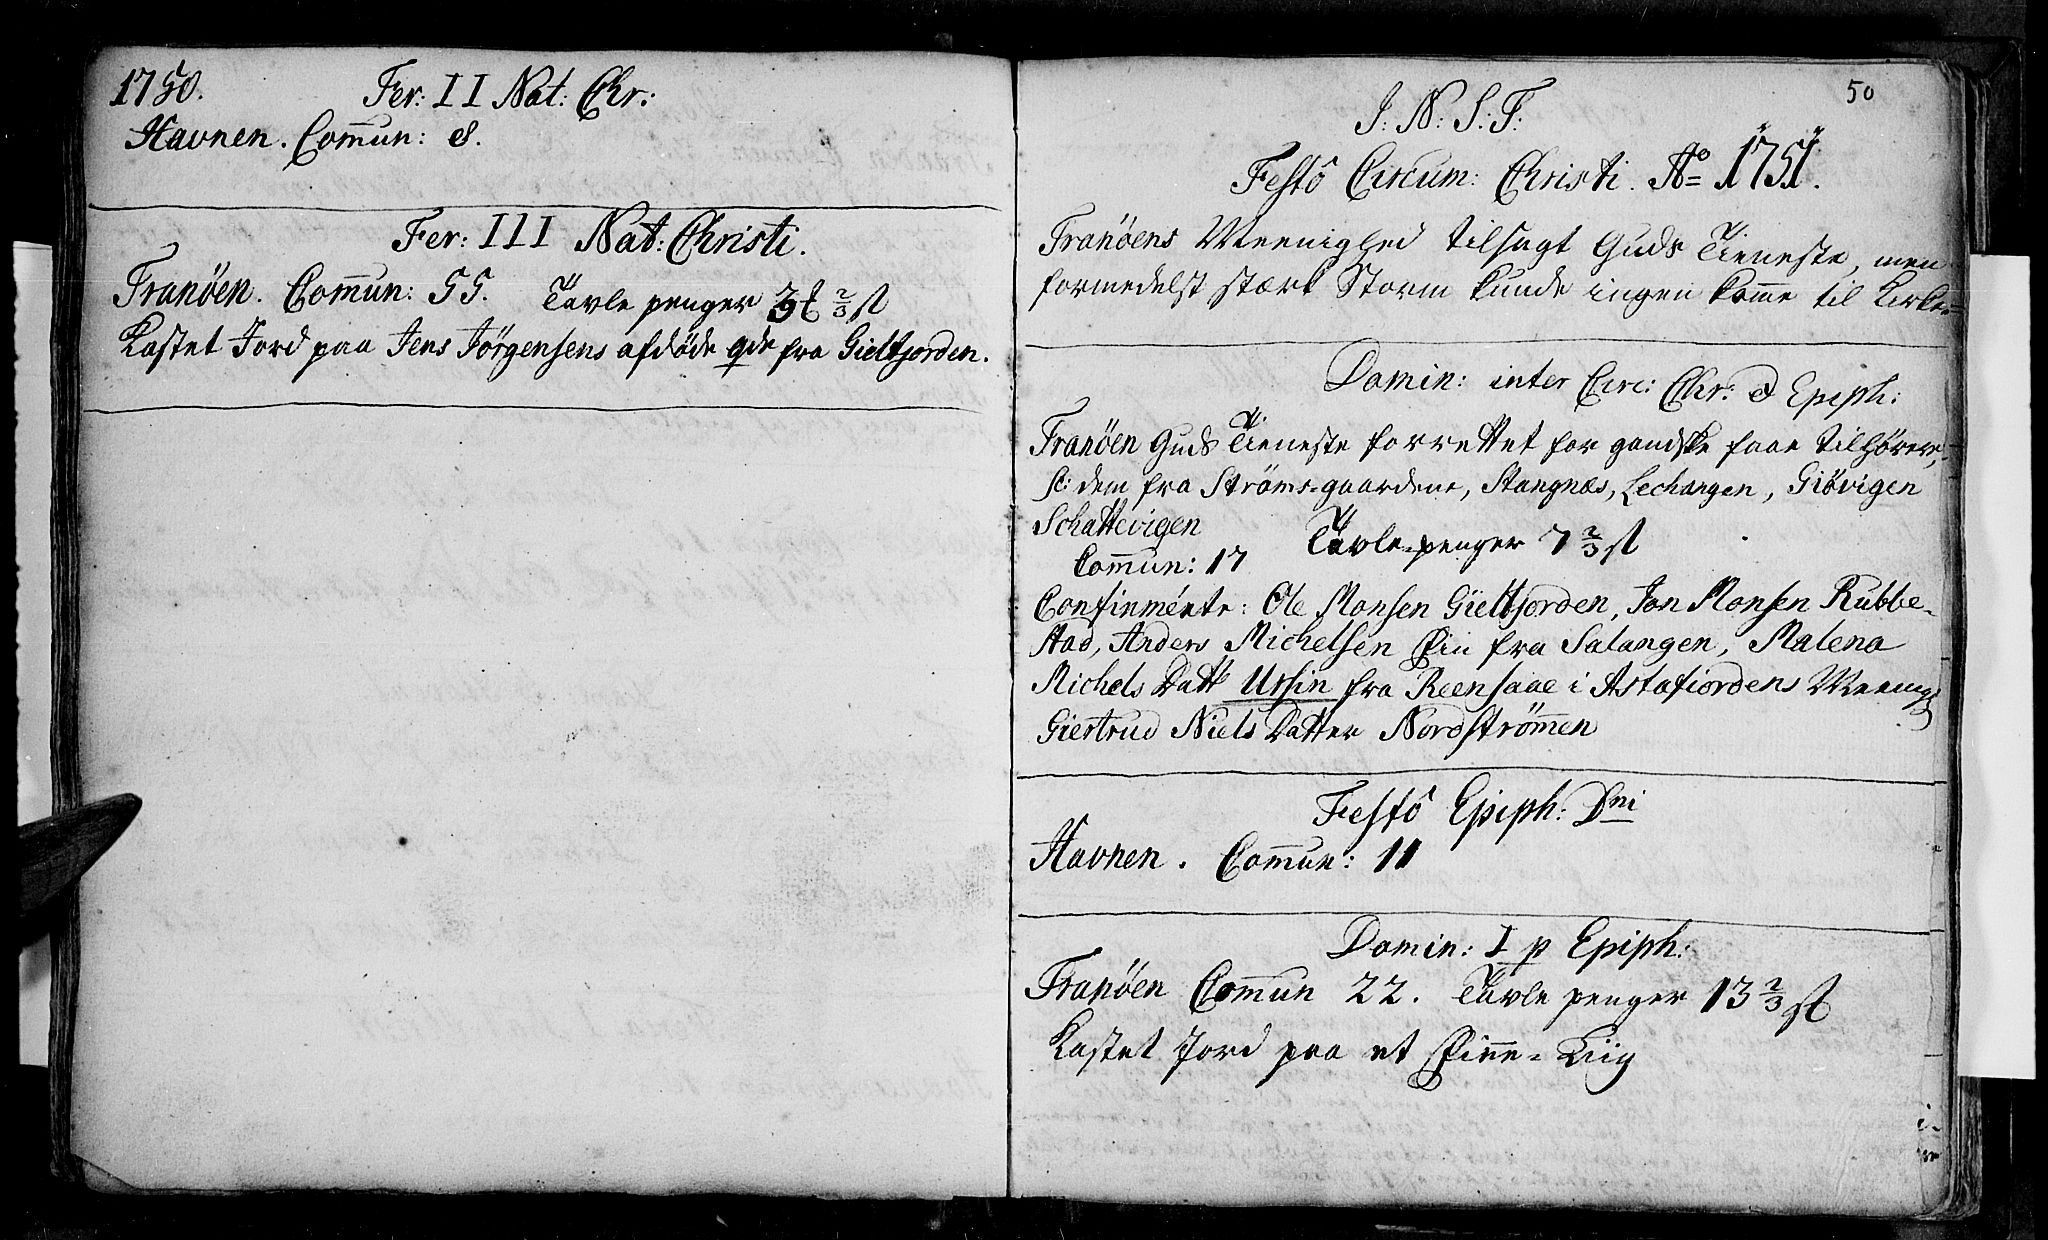 1750.
Fer: II Nat: Chr:
Havnen. Com̅un: 8.
Fer: III Nat: Christi.
Tranöen. Com̅un: 55. Tavle penger ⅔ st
Kastet Jord paa Jens Jörgensens afdöde qde fra Gieltfjorden.
50
J: N: S: T:
Festô Circum: Christi. Aº 1751.
Tranöens Meenighed tilsagt Guds Tieneste, men
formedelst stærk Storm kunde ingen kom̅e til Kirke.
Domin: inter Circ: Chr: & Epiph:
Tranöen Guds Tieneste forrettet for gandske faae tilhörere,
sc: dem fra Ströms-gaardene, Stangnæs, Lechangen, Giövigen
Schattevigen
Com̅un: 17 Tavle-penger 7 ⅔ st
Confirmérte: Ole Monsen Gieltfjorden, Jon Monsen Rubbe-
stad, Anders Michelsen Fin fra Salangen, Malena
Michels Datt Ursin fra Reensaae i Astafiordens Meenig:
Giertrud Niels Datter Nordström̅en
Festô Epiph: Dni
Havnen. Com̅un: 11
Domin: I p Epiph:
Tranöen Com̅un 22. Tavle penger 13 ⅔ st
Kastet Jord paa et Finne-Liig